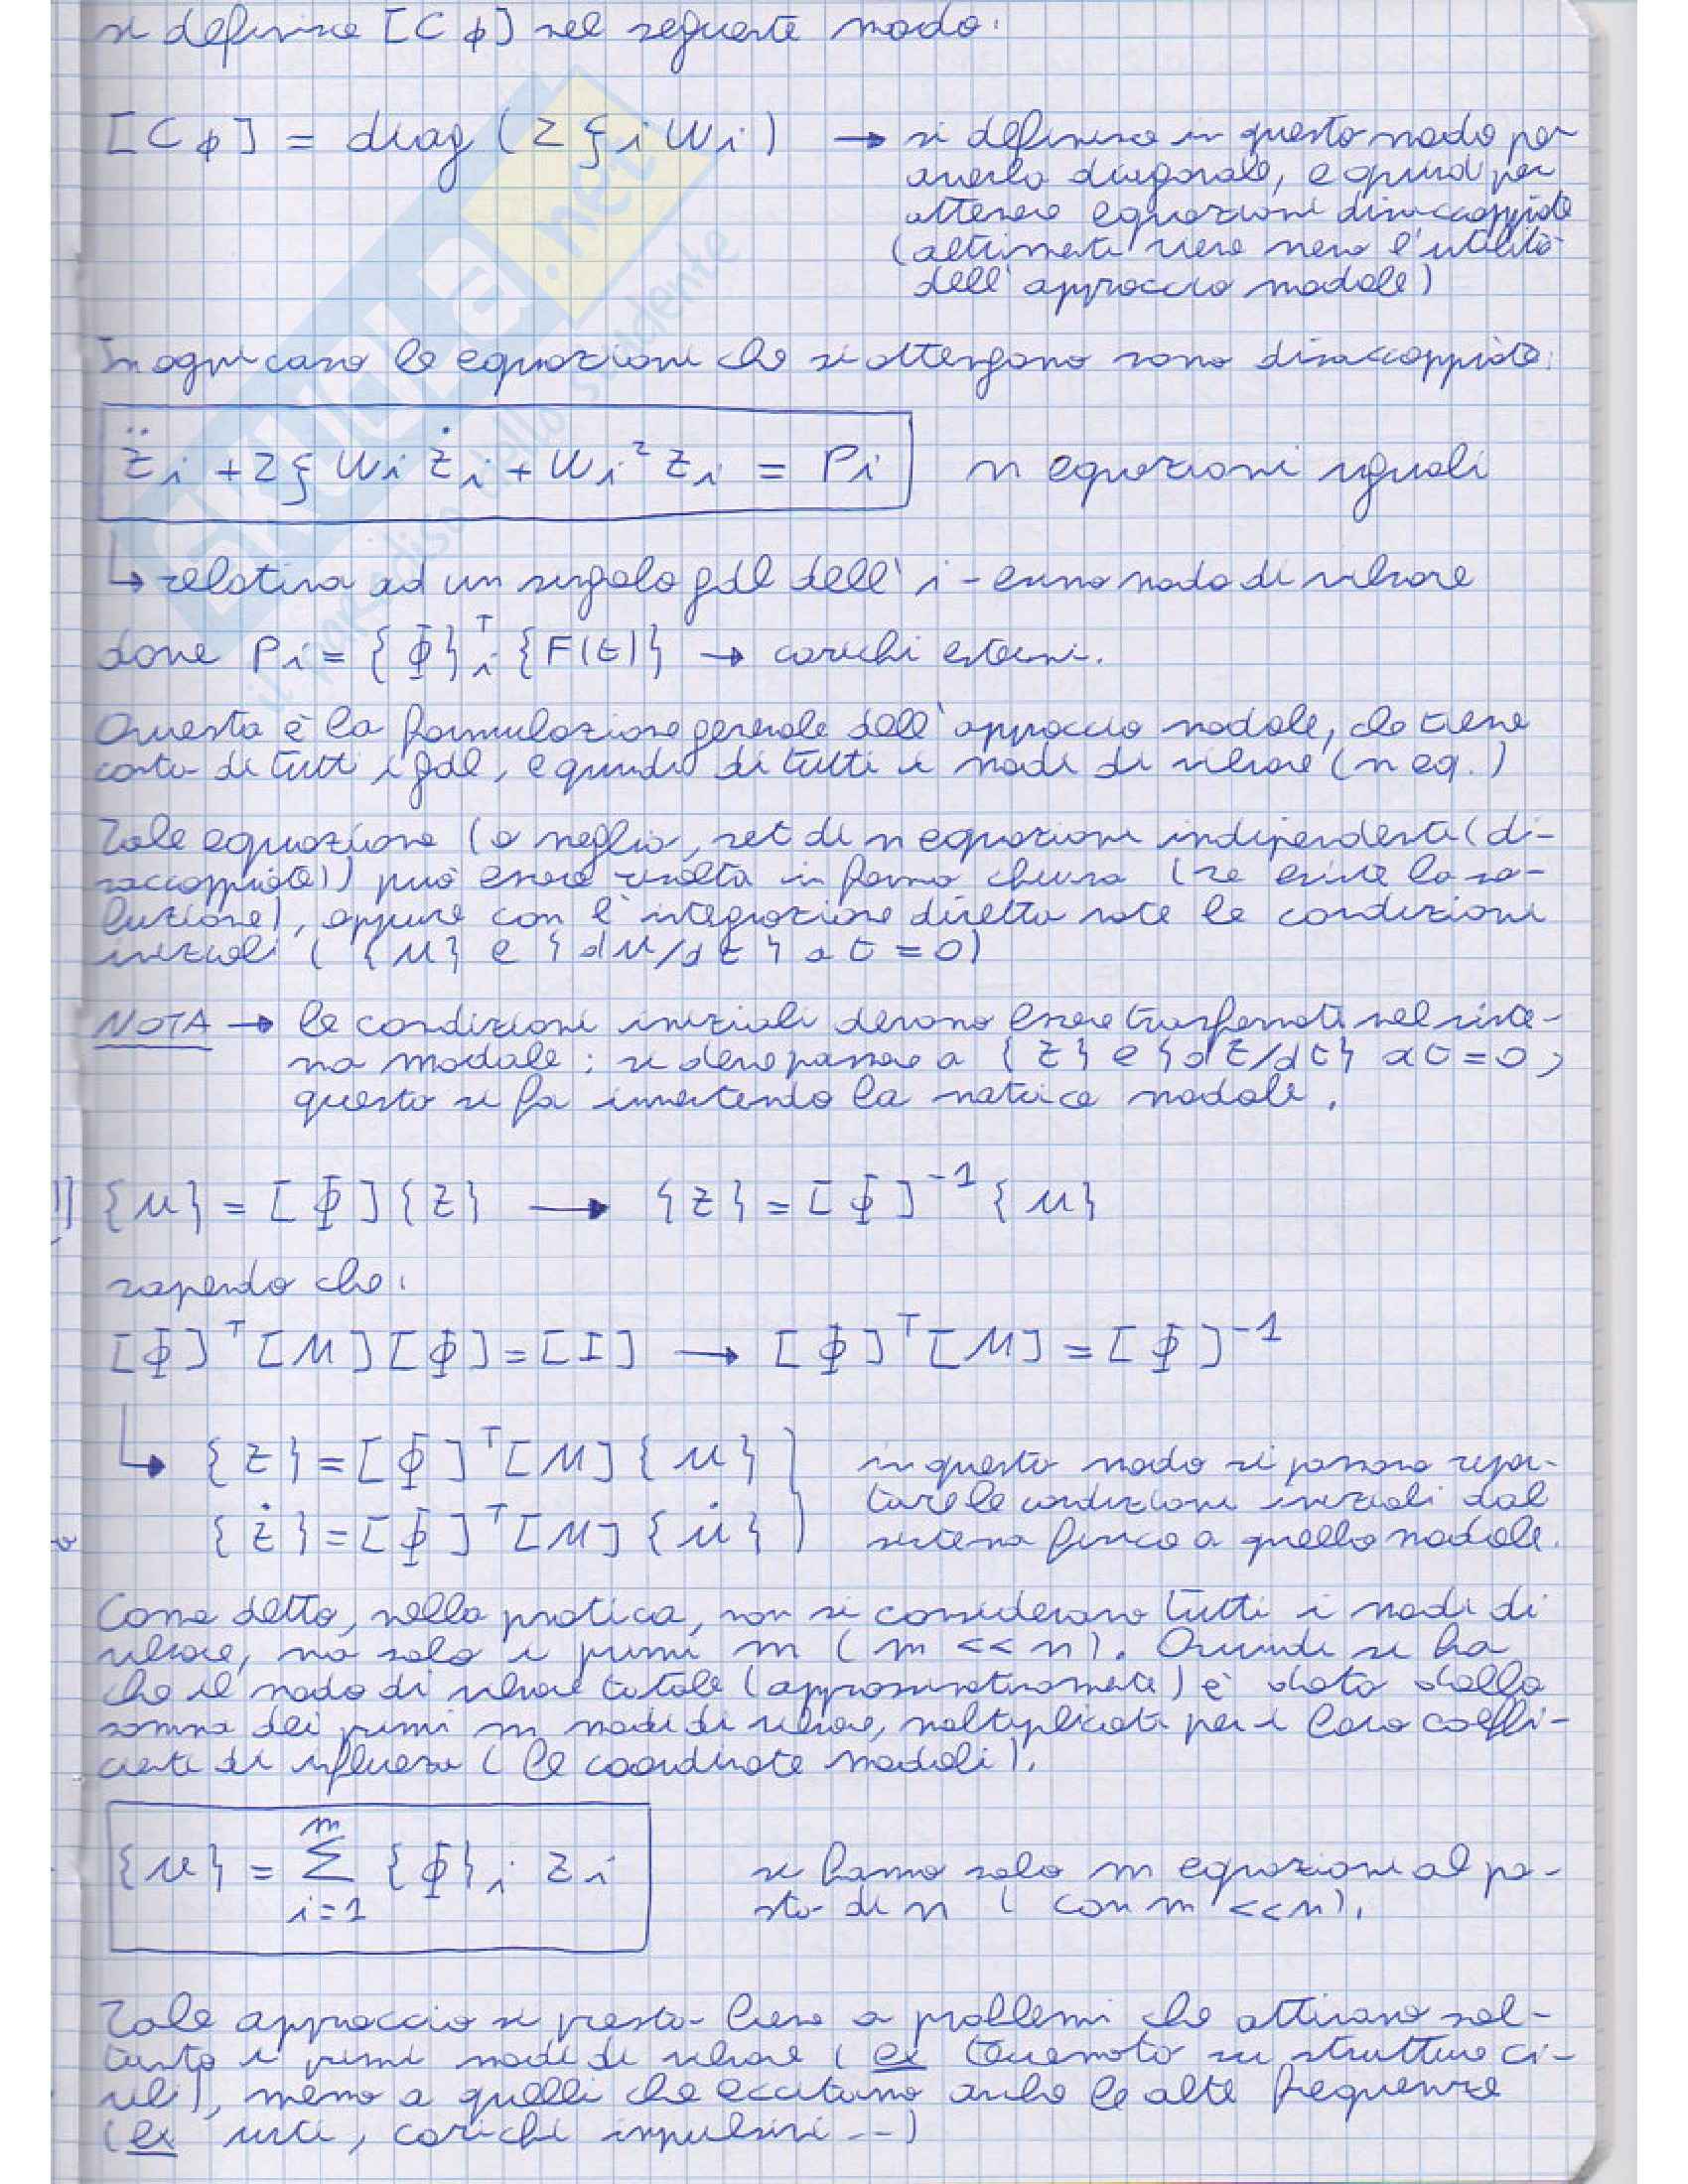 si definisce [Cϕ] nel seguente modo:
[Cϕ] = diag (2ξi ωi) → si definisce in questo modo per
averla diagonale, e quindi per
ottenere equazioni disaccoppiate
(altrimenti viene meno l'utilità
dell'approccio modale)
In ogni caso le equazioni che si ottengono sono disaccoppiate:
z̈i + 2ξ ωi żi + ωi² zi = Pi n equazioni uguali
↳ relativa ad un singolo gdl dell' i-esimo modo di vibrare
dove Pi = {Φ}iᵀ {F(t)} → carichi esterni.
Questa è la formulazione generale dell'approccio modale, che tiene
conto di tutti i gdl, e quindi di tutti i modi di vibrare (n eq.)
Tale equazione (o meglio, set di n equazioni indipendenti (di-
saccoppiate)) può essere risolta in forma chiusa (se esiste la so-
luzione), oppure con l'integrazione diretta note le condizioni
iniziali ( {u} e {du/dt} a t = 0)
NOTA → le condizioni iniziali devono essere trasformate nel siste-
ma modale; si deve passare a {z} e {dz/dt} a t = 0,
questo si fa invertendo la matrice modale.
{u} = [Φ]{z} → {z} = [Φ]⁻¹ {u}
sapendo che:
[Φ]ᵀ[M][Φ] = [I] → [Φ]ᵀ[M] = [Φ]⁻¹
↳ {z} = [Φ]ᵀ[M]{u} in questo modo si possono ripor-
tare le condizioni iniziali dal
{ż} = [Φ]ᵀ[M]{u̇} sistema fisico a quello modale.
Come detto, nella pratica, non si considerano tutti i modi di
vibrare, ma solo i primi m (m << n). Quindi si ha
che il modo di vibrare totale (approssimativamente) è dato dalla
somma dei primi m modi di vibrare, moltiplicati per i loro coeffi-
cienti di influenza (le coordinate modali).
{u} = Σ {Φ}i zi si hanno solo m equazioni al po-
m
i=1 sto di n ( con m << n).
Tale approccio si presta bene a problemi che attivano sol-
tanto i primi modi di vibrare (es terremoto su strutture ci-
vili), meno a quelli che eccitano anche le alte frequenze
(es urti, carichi impulsivi ...)
SKUOLA.net
il paradiso dello studente